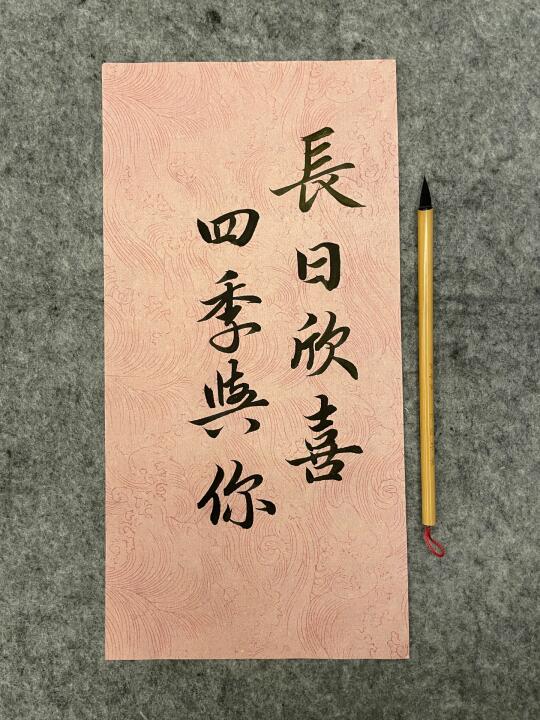 長日欣喜
四季與你